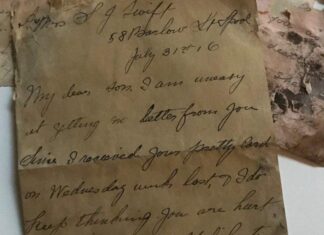 S J Swift
58 Barlow St
July 31st 16
My dear Tom. I am uneasy
at getting no letter from you
Since I received your pretty card
on Wednesday week last, & I do
keep thinking you are hurt